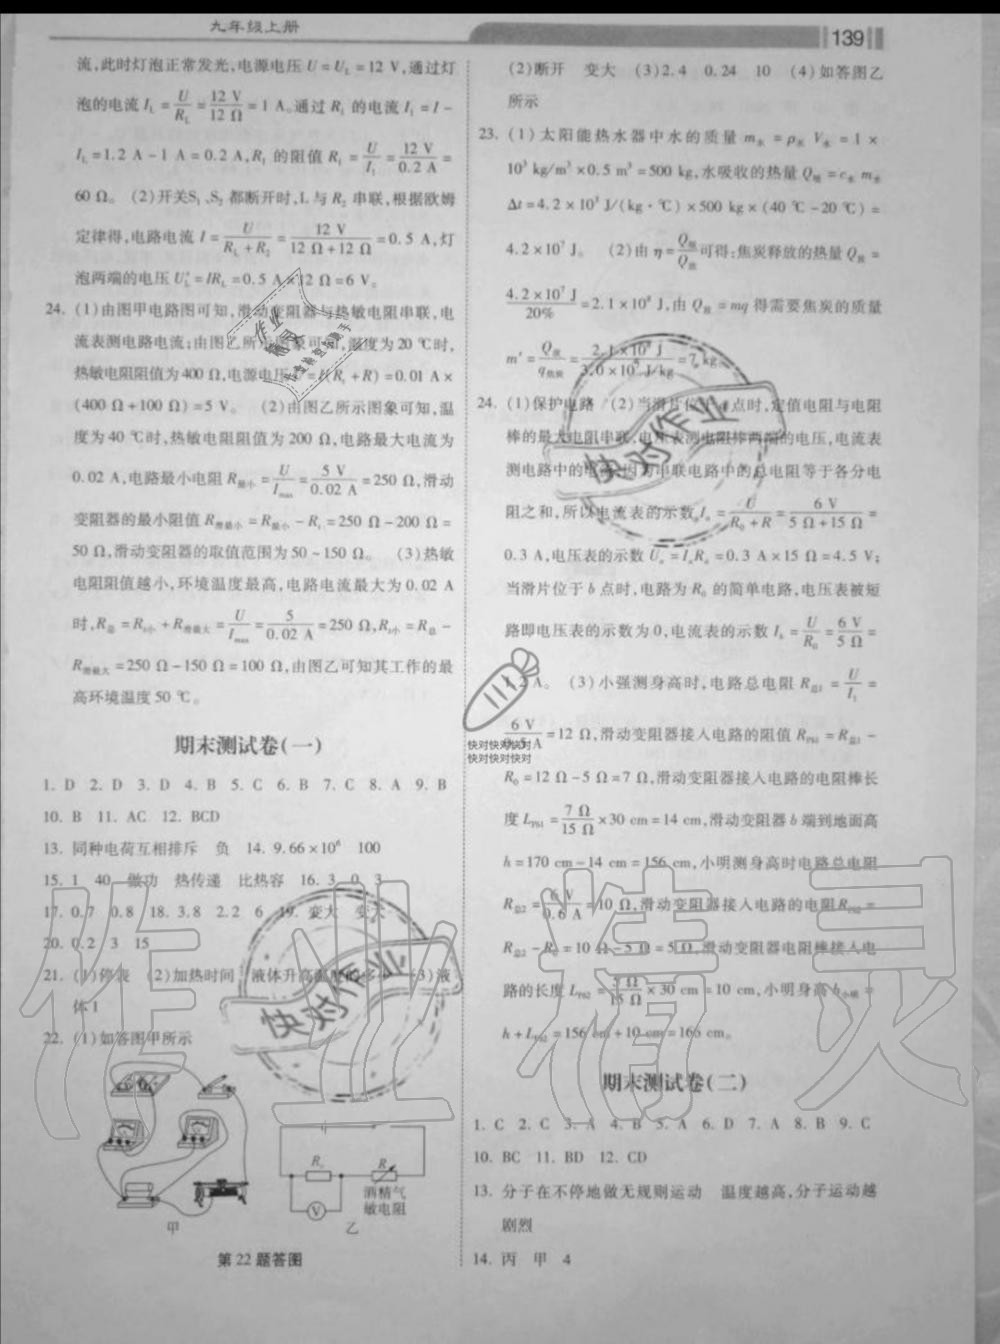 九年级上册
139
流,此时灯泡正常发光,电源电压 U=U_L=12 V,通过灯
泡的电流 I_L = U/R_L = 12 V/12 Ω = 1 A。通过 R_1 的电流 I_1 = I −
I_L = 1.2 A − 1 A = 0.2 A, R_1 的阻值 R_1 = U/I_1 = 12 V/0.2 A =
60 Ω。 (2)开关S_1、S_2 都断开时,L 与 R_2 串联,根据欧姆
定律得,电路电流 I = U/(R_L + R_2) = 12 V/(12 Ω + 12 Ω) = 0.5 A,灯
泡两端的电压 U_L' = IR_L = 0.5 A × 12 Ω = 6 V。
24. (1)由图甲电路图可知,滑动变阻器与热敏电阻串联,电
流表测电路电流;由图乙所示图象可知,温度为 20 ℃时,
热敏电阻阻值为 400 Ω,电源电压 U = I(R_t + R) = 0.01 A ×
(400 Ω + 100 Ω) = 5 V。 (2)由图乙所示图象可知,温
度为 40 ℃时,热敏电阻阻值为 200 Ω,电路最大电流为
0.02 A,电路最小电阻 R_最小 = U/I_max = 5 V/0.02 A = 250 Ω,滑动
变阻器的最小阻值 R_滑最小 = R_最小 − R_t = 250 Ω − 200 Ω =
50 Ω,滑动变阻器的取值范围为 50 ~ 150 Ω。 (3)热敏
电阻阻值越小,环境温度最高,电路电流最大为 0.02 A
时,R_总 = R_t小 + R_滑最大 = U/I_max = 5/0.02 A = 250 Ω, R_t小 = R_总 −
R_滑最大 = 250 Ω − 150 Ω = 100 Ω,由图乙可知其工作的最
高环境温度 50 ℃。
期末测试卷(一)
1. D 2. D 3. D 4. B 5. C 6. B 7. C 8. A 9. B
10. B 11. AC 12. BCD
13. 同种电荷互相排斥 负 14. 9.66×10⁶ 100
15. 1 40 做功 热传递 比热容 16. 3 0 3
17. 0.7 0.8 18. 3.8 2.2 6 19. 变大 变大
20. 0.2 3 15
21. (1)停表 (2)加热时间 液体升高温度的多少 (3)液
体 1
22. (1)如答图甲所示
R_0
R
酒精气
敏电阻
V
甲
乙
第 22 题答图
(2)断开 变大 (3)2.4 0.24 10 (4)如答图乙
所示
23. (1)太阳能热水器中水的质量 m_水 = ρ_水 V_水 = 1 ×
10³ kg/m³ × 0.5 m³ = 500 kg,水吸收的热量 Q_吸 = c_水 m_水
Δt = 4.2 × 10³ J/(kg·℃) × 500 kg × (40 ℃ − 20 ℃) =
4.2 × 10⁷ J。 (2)由 η = Q_吸/Q_放 可得:焦炭释放的热量 Q_放 =
4.2 × 10⁷ J/20% = 2.1 × 10⁸ J,由 Q_放 = mq 得需要焦炭的质量
m' = Q_放/q_焦炭 = 2.1 × 10⁸ J/3.0 × 10⁷ J/kg = 7 kg
24. (1)保护电路 (2)当滑片位于 a 点时,定值电阻与电阻
棒的最大电阻串联,电压表测电阻棒两端的电压,电流表
测电路中的电流,因为串联电路中的总电阻等于各分电
阻之和,所以电流表的示数 I_a = U/(R_0 + R) = 6 V/(5 Ω + 15 Ω) =
0.3 A,电压表的示数 U_a = I_aR_a = 0.3 A × 15 Ω = 4.5 V;
当滑片位于 b 点时,电路为 R_0 的简单电路,电压表被短
路即电压表的示数为 0,电流表的示数 I_b = U/R_0 = 6 V/5 Ω =
1.2 A。 (3)小强测身高时,电路总电阻 R_总1 = U/I_1 =
6 V/0.5 A = 12 Ω,滑动变阻器接入电路的阻值 R_PB1 = R_总1 −
R_0 = 12 Ω − 5 Ω = 7 Ω,滑动变阻器接入电路的电阻棒长
度 L_PB1 = 7 Ω/15 Ω × 30 cm = 14 cm,滑动变阻器 b 端到地面高
h = 170 cm − 14 cm = 156 cm,小明测身高时电路总电阻
R_总2 = 6 V/0.6 A = 10 Ω,滑动变阻器接入电路的电阻 R_PB2 =
R_总2 − R_0 = 10 Ω − 5 Ω = 5 Ω,滑动变阻器电阻棒接入电
路的长度 L_PB2 = 5 Ω/15 Ω × 30 cm = 10 cm,小明身高 h_小明 =
h + L_PB2 = 156 cm + 10 cm = 166 cm。
期末测试卷(二)
1. C 2. C 3. A 4. B 5. A 6. D 7. A 8. B 9. C
10. BC 11. BD 12. CD
13. 分子在不停地做无规则运动 温度越高,分子运动越
剧烈
14. 丙 甲 4
快对作业
快对作业
快对快对快对
快对快对快对
作业精灵